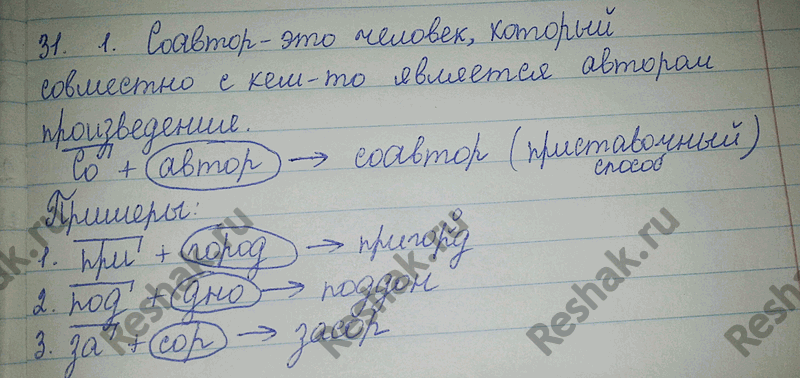 31. 1. Соавтор - это человек, который
совместно с кем-то является автором
произведения.
Со + автор → соавтор (приставочный)
способ
Примеры:
1. при + город → пригорд
о
2. под + дно → поддон
3. за + сор → засор
Reshak.ru
Reshak.ru
Reshak.ru
Reshak.ru